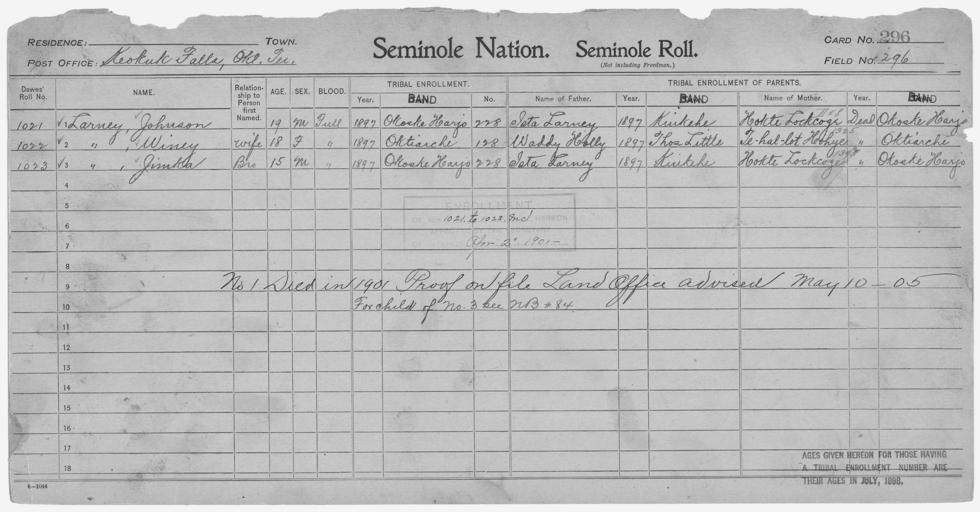 RESIDENCE: TOWN.
POST OFFICE: Keokuk Falls, Okl. Ter.
Seminole Nation. Seminole Roll.
(Not including Freedmen.)
CARD NO. 296
FIELD NO. 296
Dawes' Roll No. NAME. Relationship to Person first Named. AGE. SEX. BLOOD. TRIBAL ENROLLMENT. Year. BAND No. TRIBAL ENROLLMENT OF PARENTS. Name of Father. Year. BAND Name of Mother. Year. BAND
1021 1 Larney, Johnson 19 M Full 1897 Okoske Harjo 228 Ista Larney 1897 Kinkehe Hokte Lockcoze Dead Okoske Harjo
1022 2 " , Winey wife 18 F " 1897 Oktiarche 128 Waddy Holly 1897 Thos Little " Oktiarche
1023 3 " , Jimka Bro 15 M " 1897 Okoske Harjo 228 Ista Larney 1897 Kinkehe Hokte Lockcoze " Okoske Harjo
4
5
ENROLLMENT
6 HEREON
1021 to 1023 Inc
7 Apr. 2" 1901
8
9 No 1 Died in 1901 Proof on file Land Office advised May 10-05
10 For child of No. 3 see NB #84.
11
12
13
14
15
16
17
18
AGES GIVEN HEREON FOR THOSE HAVING
A TRIBAL ENROLLMENT NUMBER ARE
THEIR AGES IN JULY, 1898.